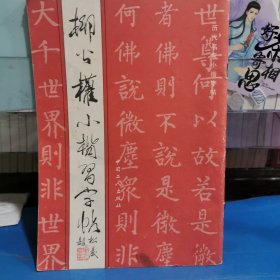 世尊何以故若是微
者佛則不說是微塵
何佛說微塵衆則非
柳公權小楷習字帖
大千世界則非世界